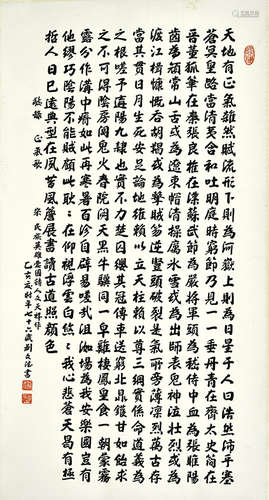 天地有正氣雖然賦流形下則為河嶽上則為日星于人曰浩然沛乎塞
蒼冥皇路當清夷含和吐明庭時窮節乃見一一垂丹青在齊太史簡在
晉董狐筆在秦張良椎在漢蘇武節為嚴將軍頭為嵇侍中血為張睢陽
齒為顏常山舌或為遼東帽清操厲冰雪或為出師表鬼神泣壯烈或為
渡江楫慷慨吞胡羯或為擊賊笏逆豎頭破裂是氣所旁薄凜烈萬古存
當其貫日月生死安足論地維賴以立天柱賴以尊三綱實係命道義為
之根嗟予遘陽九隸也實不力楚囚纓其冠傳車送窮北鼎鑊甘如飴求
之不可得陰房闃鬼火春院閟天黑牛驥同一皂雞棲鳳凰食一朝蒙霧
露分作溝中瘠如此再寒暑百沴自辟易嗟哉沮洳場為我安樂國豈有
他繆巧陰陽不能賊顧此耿々在仰視浮雲白悠々我心悲蒼天曷有極
哲人日已遠典型在夙昔風簷展書讀古道照顏色
錄 正氣歌 宋民族英雄 國 公文天祥作
乙亥 年七十六歲劉 書